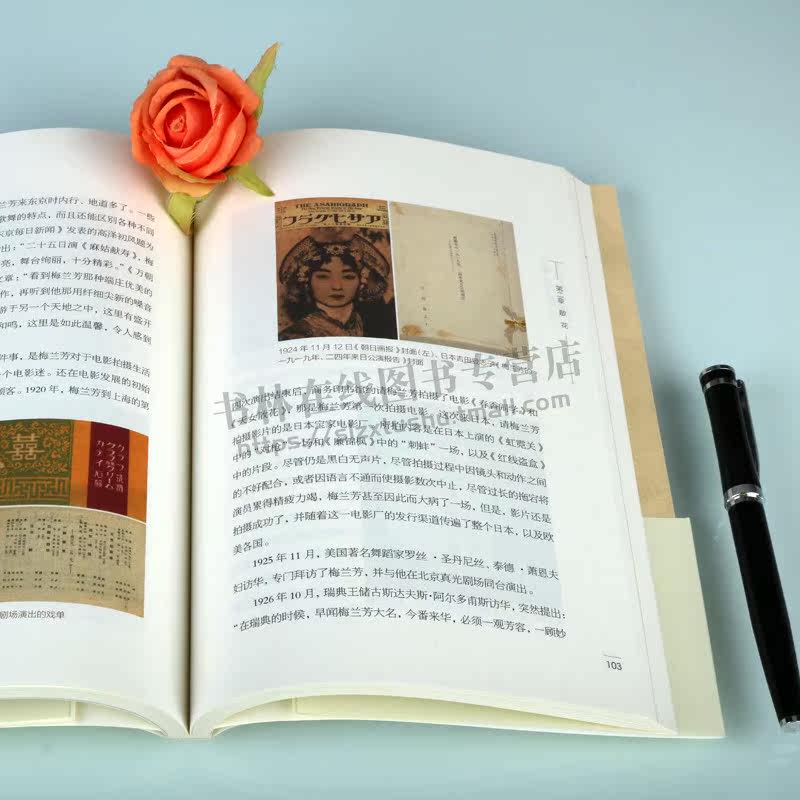 兰芳来东京时内行、地道多了。一些
歌舞的特点，而且还能区别各种不同
京每日新闻》发表的高泽初风题为
出：“二十五日演《麻姑献寿》，梅
亮，舞台绚丽，十分精彩。”《万朝
文章：“看到梅兰芳那种端庄优美的
作，再听到他那用纤细尖新的嗓音
游于另一个天地之中，这里有盛开
和鸣，这里是如此温馨，令人感到
件事，是梅兰芳对于电影拍摄生活
一个电影迷。还在电影发展的初始
顾客。1920 年，梅兰芳到上海的第
囍
クラブ洗粉
クラブ美身クリーム
カテイ石鹸
剧场演出的戏单
THE ASAHIGRAPH
アサヒグラフ
1924 年 11 月 12 日《朝日画报》封面（左），日本吉田
一九一九年、二四年来日公演报告》封面
第二章 散 花
书林在线图书专营店
https://slzxtushu.tmall.com
演出结束后，商务印书馆约请梅兰芳拍摄了电影《春香闹学》和
《天女散花》，那是梅兰芳第一次拍摄电影。这次来日本，请梅兰芳
拍摄影片的是日本宝冢电影厂，所拍内容是在日本上演的《虹霓关》
中的“对枪”一场和《廉锦枫》中的“刺蚌”一场，以及《红线盗盒》
中的片段。尽管仍是黑白无声片，尽管拍摄过程中因镜头和动作之间
的不好配合，或者因语言不通而使摄影数次中止，尽管过长的拖宕将
演员累得精疲力竭，梅兰芳甚至因此而大病了一场，但是，影片还是
拍摄成功了，并随着这一电影厂的发行渠道传遍了整个日本，以及欧
美各国。
1925 年 11 月，美国著名舞蹈家罗丝·圣丹尼丝、泰德·萧恩夫
妇访华，专门拜访了梅兰芳，并与他在北京真光剧场同台演出。
1926 年 10 月，瑞典王储古斯达夫斯·阿尔多甫斯访华，突然提出：
“在瑞典的时候，早闻梅兰芳大名，今番来华，必须一观芳容，一顾妙
103